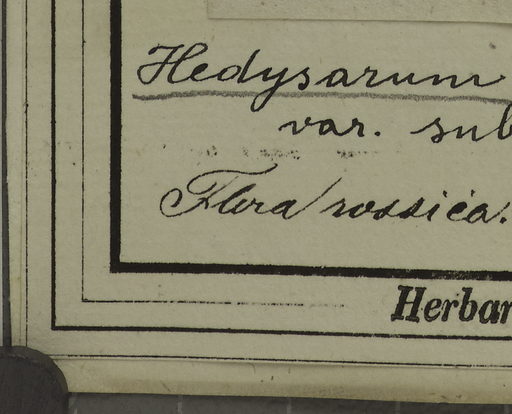 Hedysarum
var. sub
Flora rossica.
Herbar